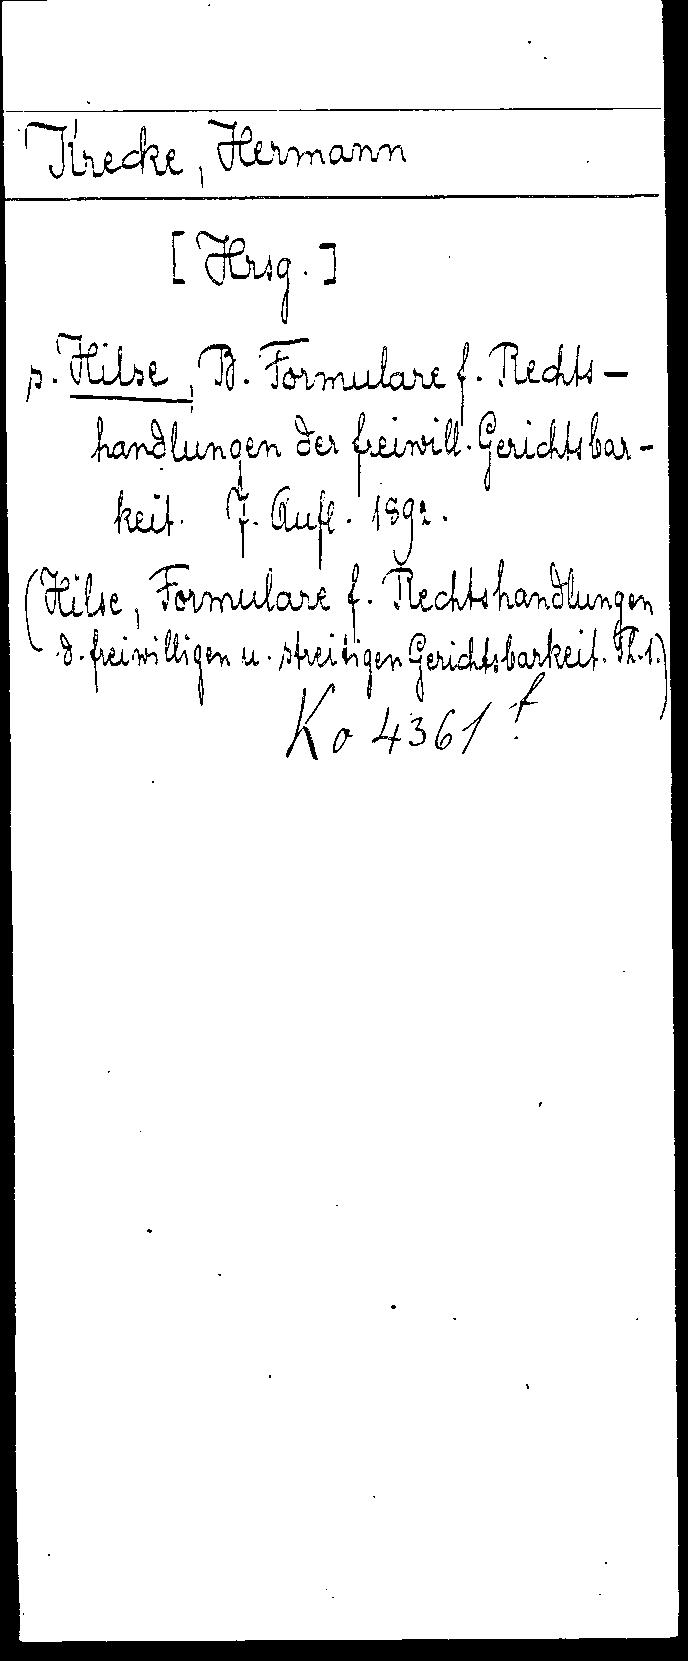 Krecke, Hermann
[Hrsg.]
s. Hilse, B. Formulare f. Rechts-
handlungen der freiwill. Gerichtsbar-
keit. 7. Aufl. 1892.
(Hilse, Formulare f. Rechtshandlungen
d. freiwilligen u. streitigen Gerichtsbarkeit. Th. 1.)
Ko 4361 f